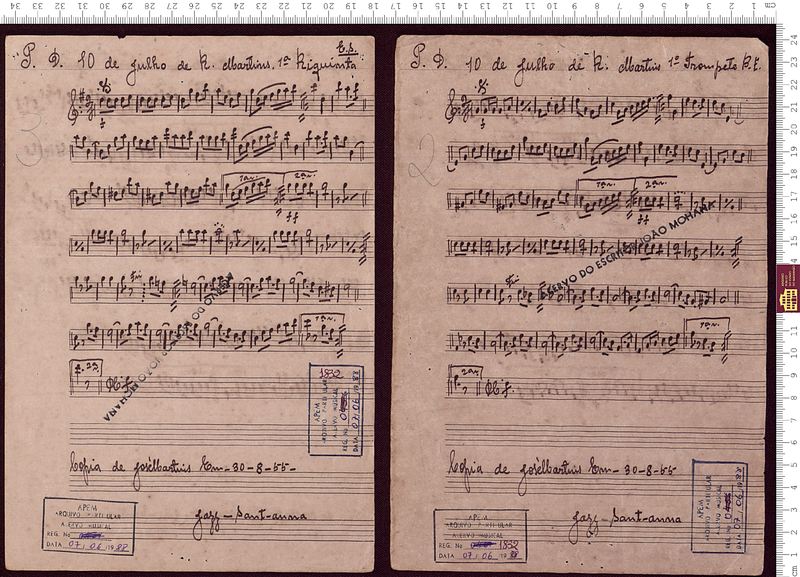 P. D. 10 de Julho de R. Martins. 1ª Riquinta
E.s.
1ª v.
2ª v.
ff
Fim
1ª v.
2ª v.
ACERVO DO ESCRITOR JOÃO MOHANA
Copia de José Martins Em-30-8-55-
Jazz-Sant-anna
1832
APEM
ARQUIVO PARTICULAR
ACERVO MUSICAL
REG. No
DATA 07, 06, 1988
APEM
ARQUIVO PARTICULAR
ACERVO MUSICAL
REG. No
DATA 07, 06, 1988
P. D. 10 de Julho de R. Martins 1º Trompete
2
1ª v.
2ª v.
ff
ACERVO DO ESCRITOR JOÃO MOHANA
Fim
1ª v.
2ª v.
Copia de José Martins Em-30-8-55
Jazz-Sant-anna
APEM
ARQUIVO PARTICULAR
ACERVO MUSICAL
REG. No 1832
DATA 07, 06, 1988
APEM
ARQUIVO PARTICULAR
ACERVO MUSICAL
REG. No
DATA 07, 06, 1988